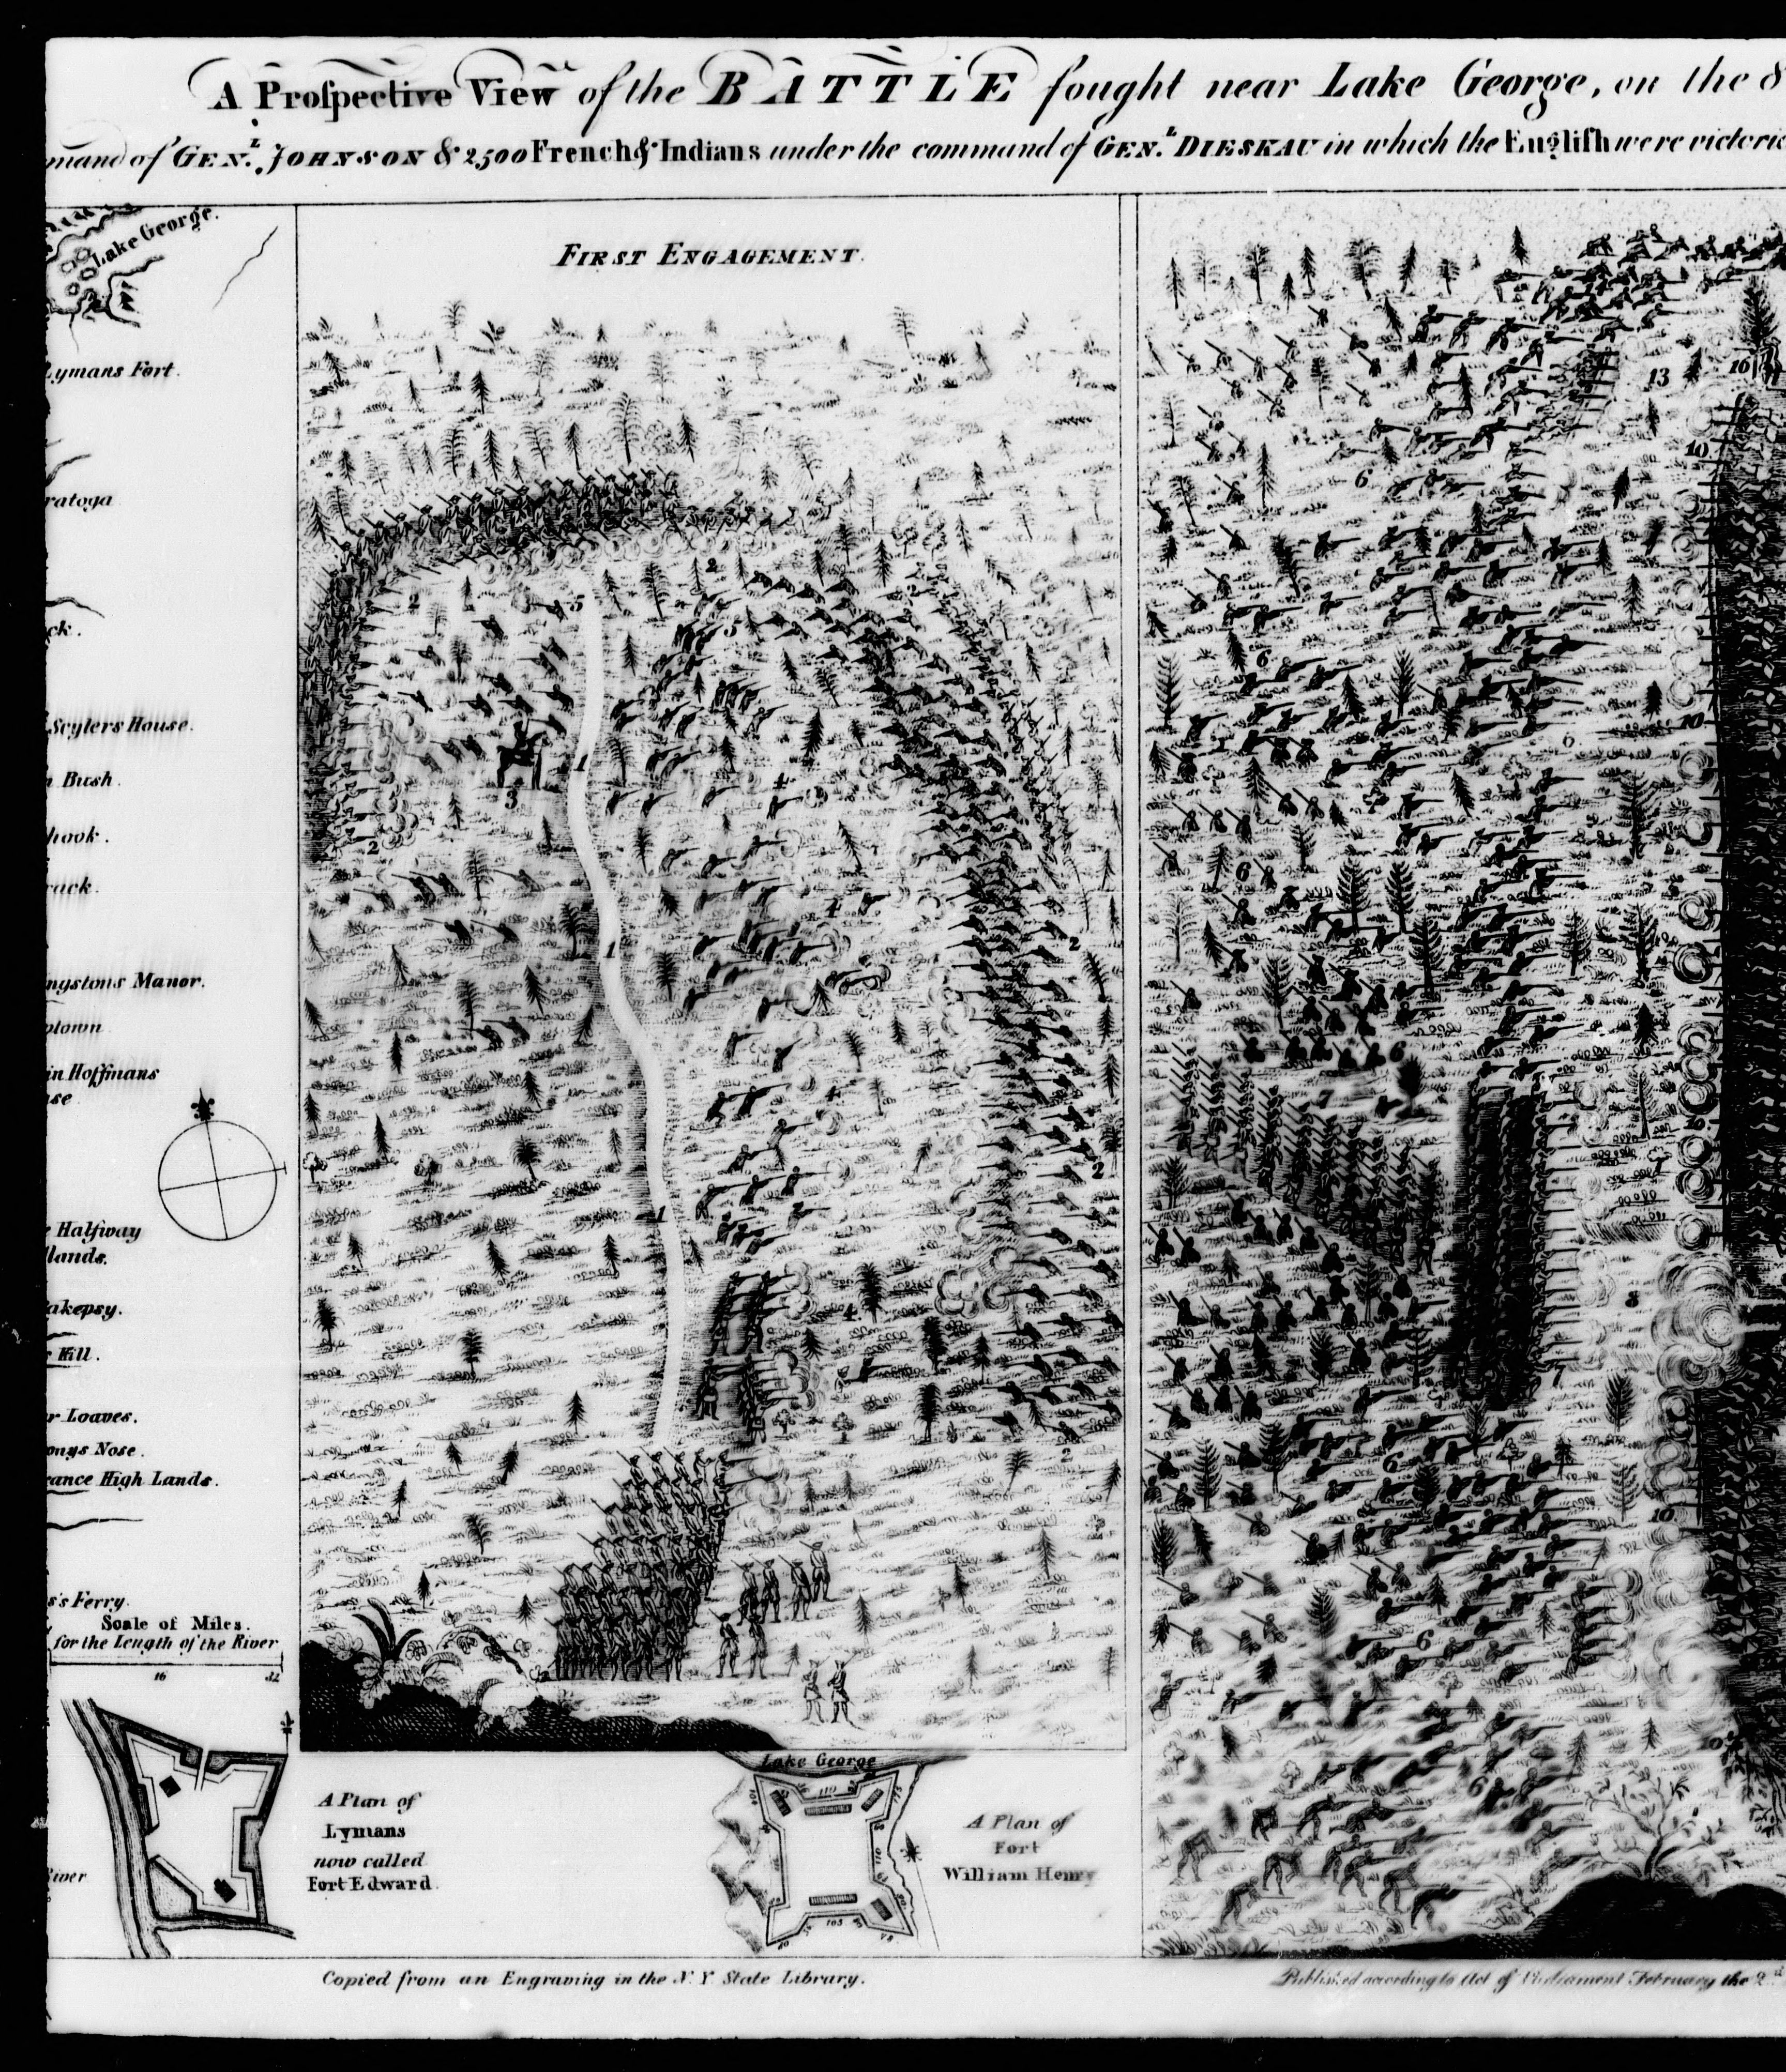 A Proſpective View of the BATTLE fought near Lake George, on the 8
mand of GEN.L JOHNSON & 2500 French & Indians under the command of GEN.L DIESKAU in which the Engliſh were victorio
Lake George.
FIRST ENGAGEMENT.
Lymans Fort.
ratoga
ck.
Scylers House.
n Bush.
hook.
rack.
ngstons Manor.
ptown
in Hoffmans
se
e Halfway
lands.
akepsy.
r Kill.
r Loaves.
onys Nose.
rance High Lands.
s's Ferry.
Scale of Miles.
for the Length of the River
16 32
2 2 2
5 5
1
3
4
2
4
1
2
4
2
1
4
2
13 10
10
6
6
10
6
6
6
7
10
8
7
6
10
6
10
6
River
A Plan of
Lymans
now called
Fort Edward.
Lake George
110
110
103
A Plan of
Fort
William Henry
Copied from an Engraving in the N.Y State Library.
Published according to Act of Parliament February the 2.d